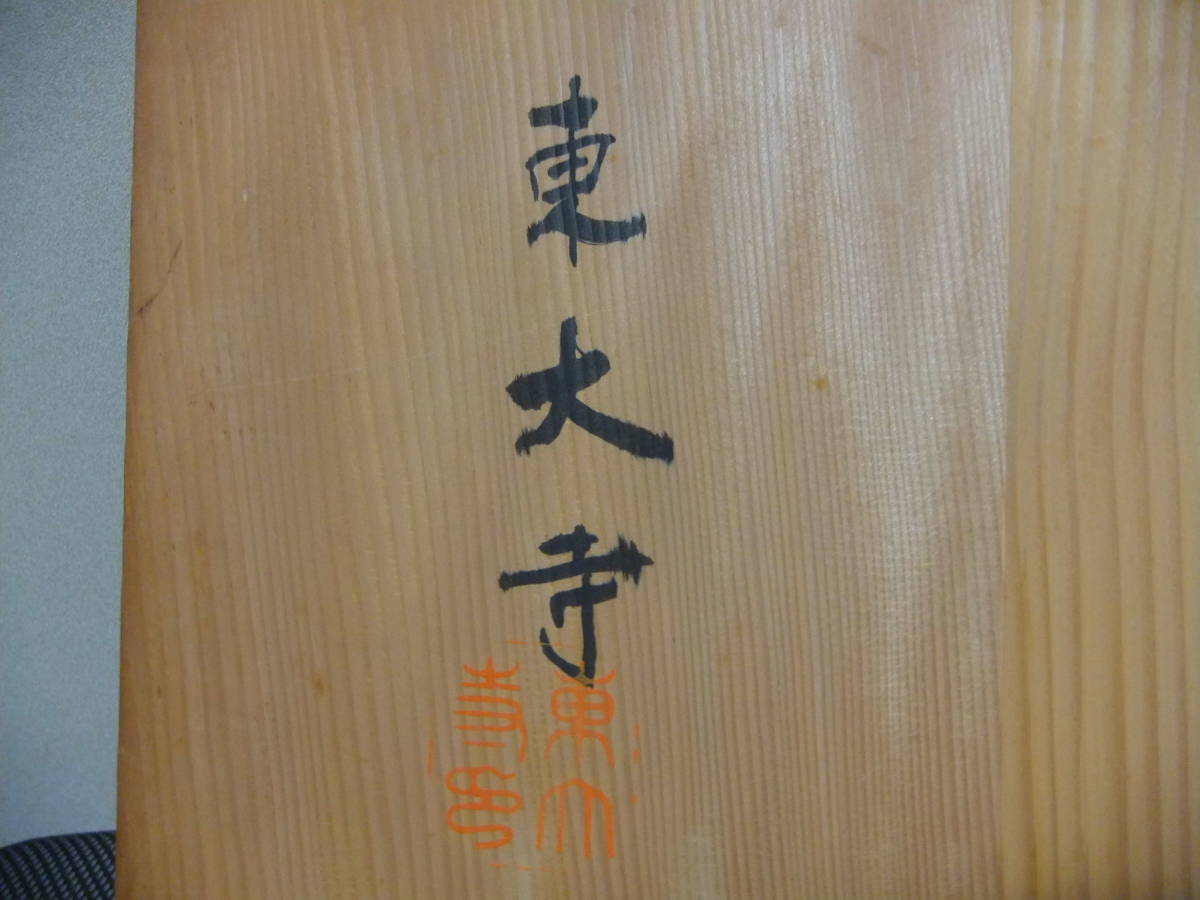 東大寺
東大
寺印